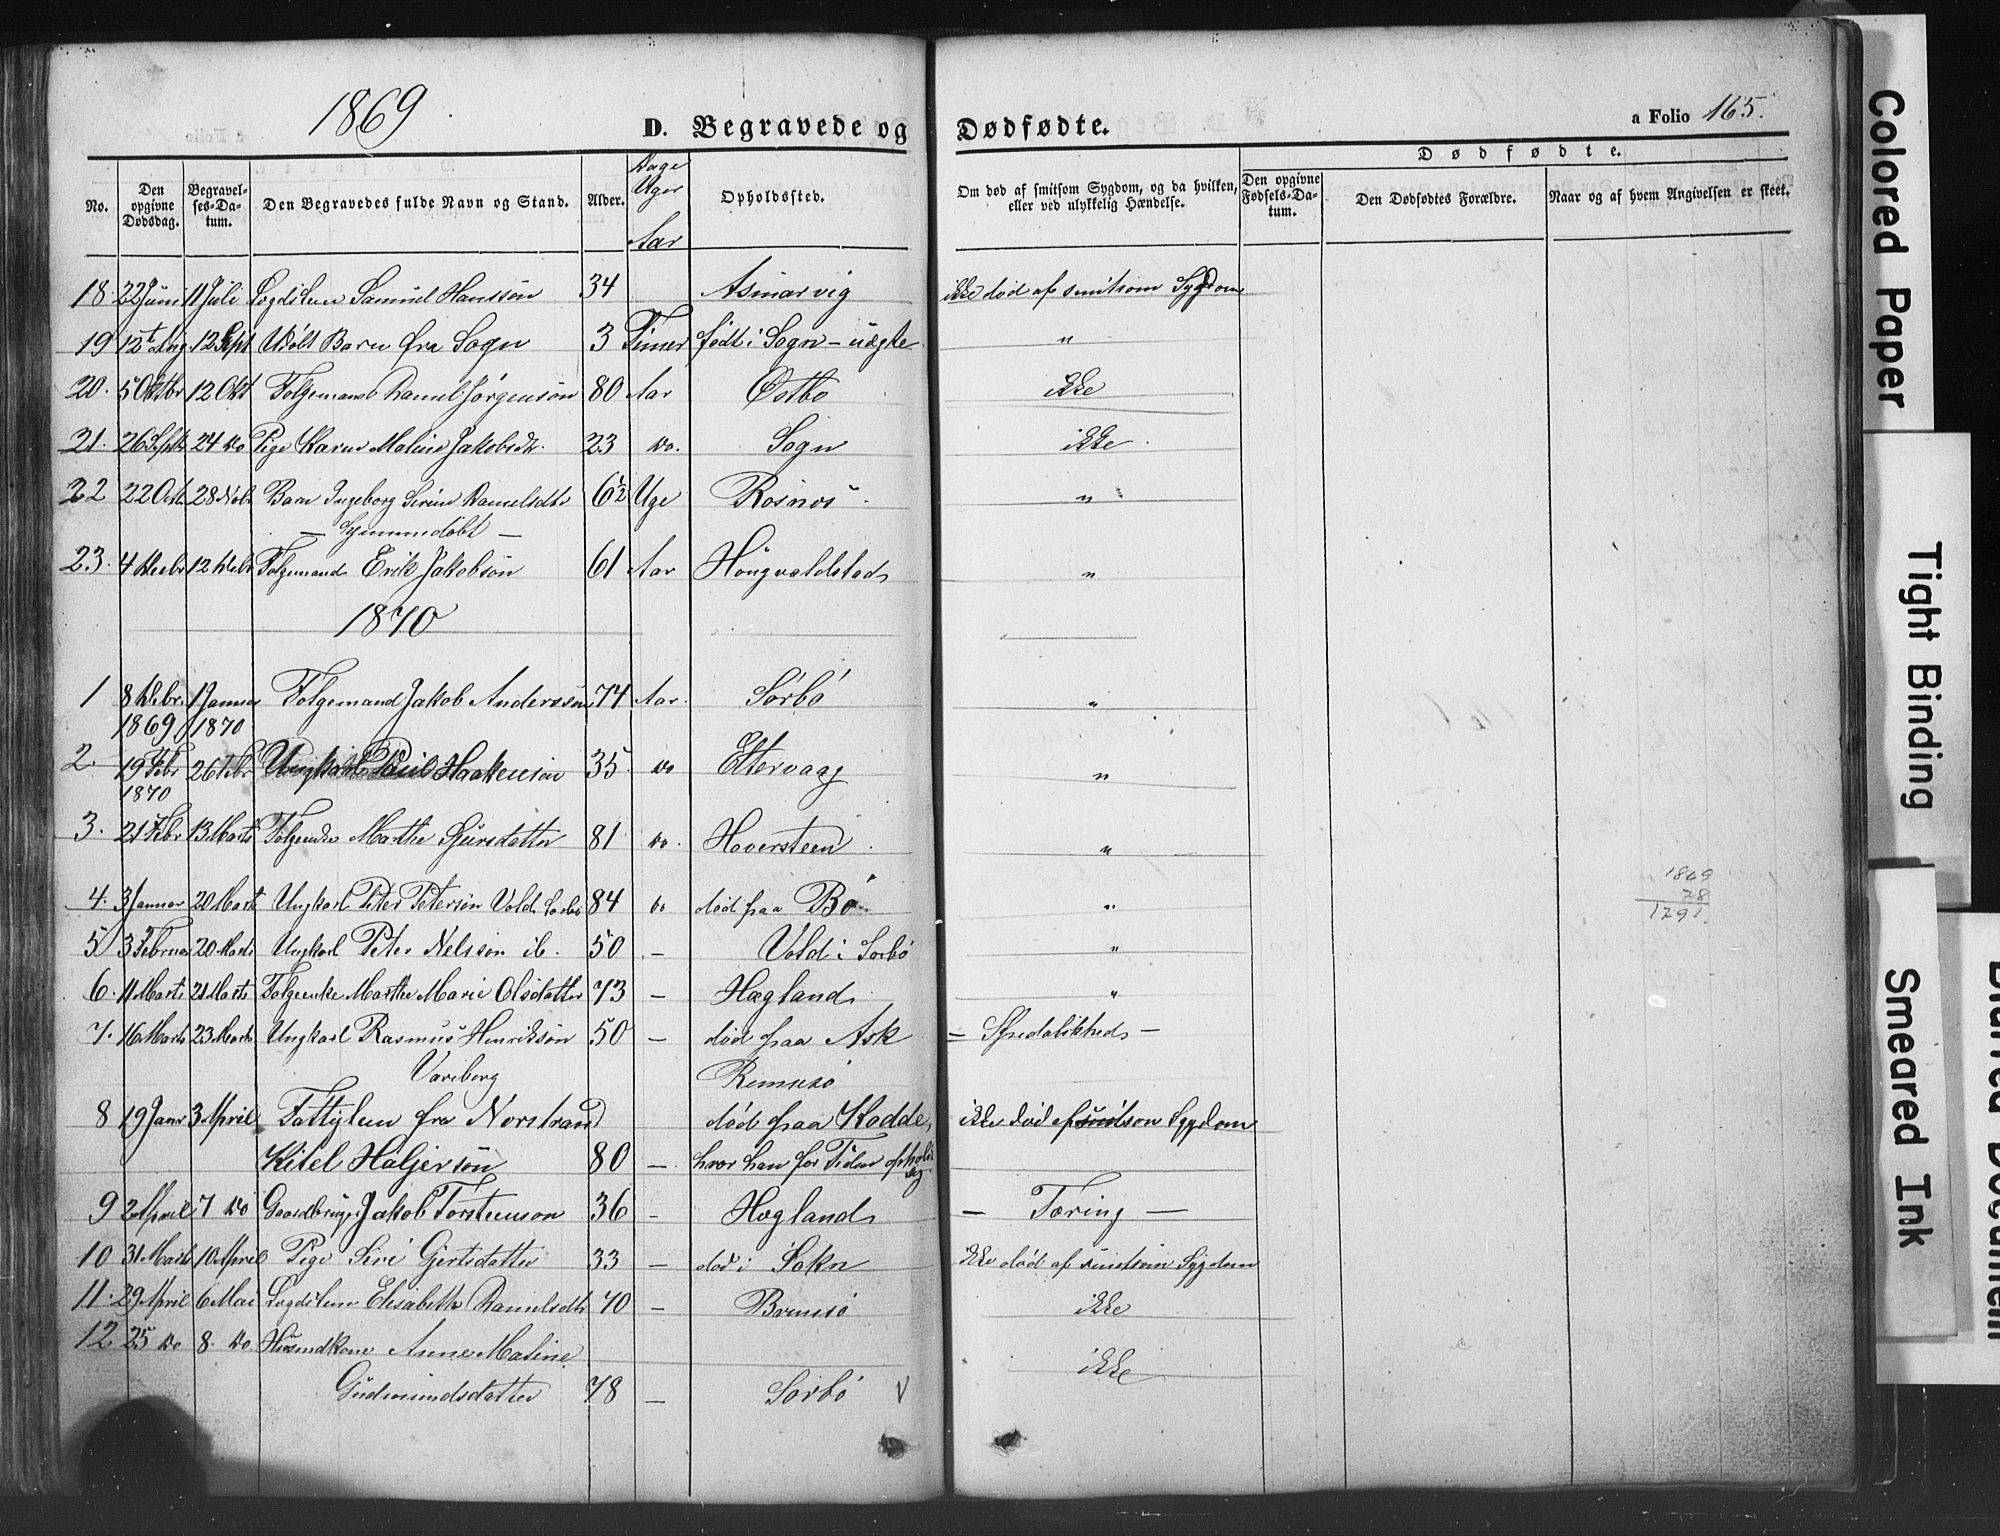 1869
D. Begravede og Dødfødte.
a Folio 165.
Dødfødte.
No. Den opgivne Dødsdag. Begravelses-Datum. Den Begravedes fulde Navn og Stand. Alder. Dage Uger Aar Opholdssted. Om død af smitsom Sygdom, og da hvilken, eller ved ulykkelig Hændelse. Den opgivne Fødsels-Datum. Den Dødfødtes Forældre. Naar og af hvem Angivelsen er skeet.
18. 22 Juni 11 Juli Lægdslem Samuel Hansson 34 Asmarvig ikke død af smitsom Sygdom
19 12t Aug 12 Sept Udöbt Barn fra Sogn 3 Timer født i Sogn - uægte "
20. 5 Oktbr 12 Okt Folgemand Daniel Jørgenson 80 Aar Østbo ikke
21. 26 Septb 24 do Pige Karen Maline Jakobsdtr. 23 do. Sogn ikke
22 22 Octb 28 Novbr Barn Ingeborg Serine Danielsdtr 6½ Uge Rosnos "
— hjemmedöbt —
23. 4 Decbr 12 Decbr Folgemand Erik Jakobson 61 Aar Hougvaldstad "
1870
1 8 Decbr. 1 Januar Folgemand Jakob Andersson 74 Aar Sörbö "
1869 1870
2. 19 Febr 26 Febr Ungkarl Poul Haakenson 35. do Eltervaag "
1870
3. 21 Febr 13 Marts Folgenke Marthe Sjursdatter 81 do. Hoversteen "
4. 3 Januar 20 Marts Ungkarl Peter Peterson Vold Sorbö 84 do død paa Bö "
5 3 Februar 20 Marts Ungkarl Peter Nelsson ib. 50 — Vold i Sorbö "
6. 11 Marts 21 Marts Folgeenke Marthe Marie Olsdatter 73 — Hægland "
7. 16 Marts 23 Marts Ungkarl Rasmus Henrikson 50 — død paa Ask — Spedalskhed —
Vareberg Rennesö
8 19 Janr 3 April Fattiglem fra Norstrand død paa Kodde, ikke død af smitsom Sygdom
Kitel Haljerson 80 — hvor han for Tiden opholdt sig
9 2 April 7 do Gaardbruger Jakob Torstenson 36 — Hægland — Tæring —
10 31 Marts 10 April Pige Siri Gjertsdatter 33 — død i Sokn ikke død af smitsom Sygdom
11. 29 April 6 Mai Lægdslem Elisabeth Danielsdtr 70 — Bremsö ikke
12 25 do 8. do Husmdkone Anne Maline
Gudmundsdatter 78 — Sorbö V ikke
1869
78
1791.
Colored Paper
Tight Binding
Smeared Ink
Blurred Document